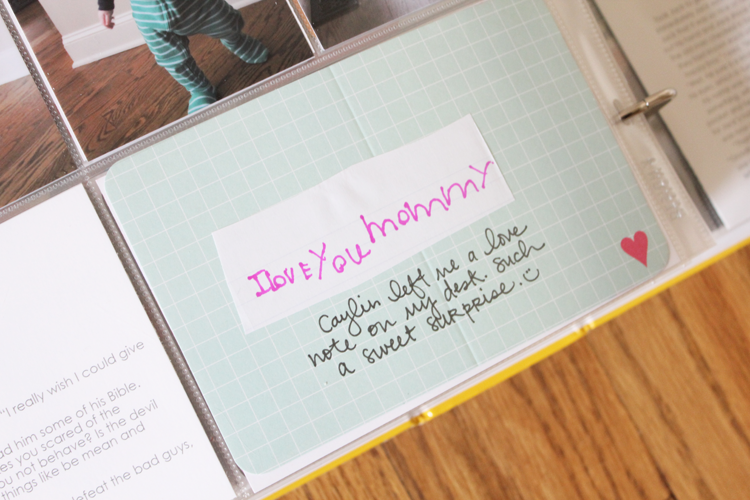 I LOVE YOU mommmy
Caylin left me a love
note on my desk. Such
a sweet surprise. ☺
"I really wish I could give
ad him some of his Bible.
es you scared of the
ou not behave? Is the devil
things like be mean and
defeat the bad guys,